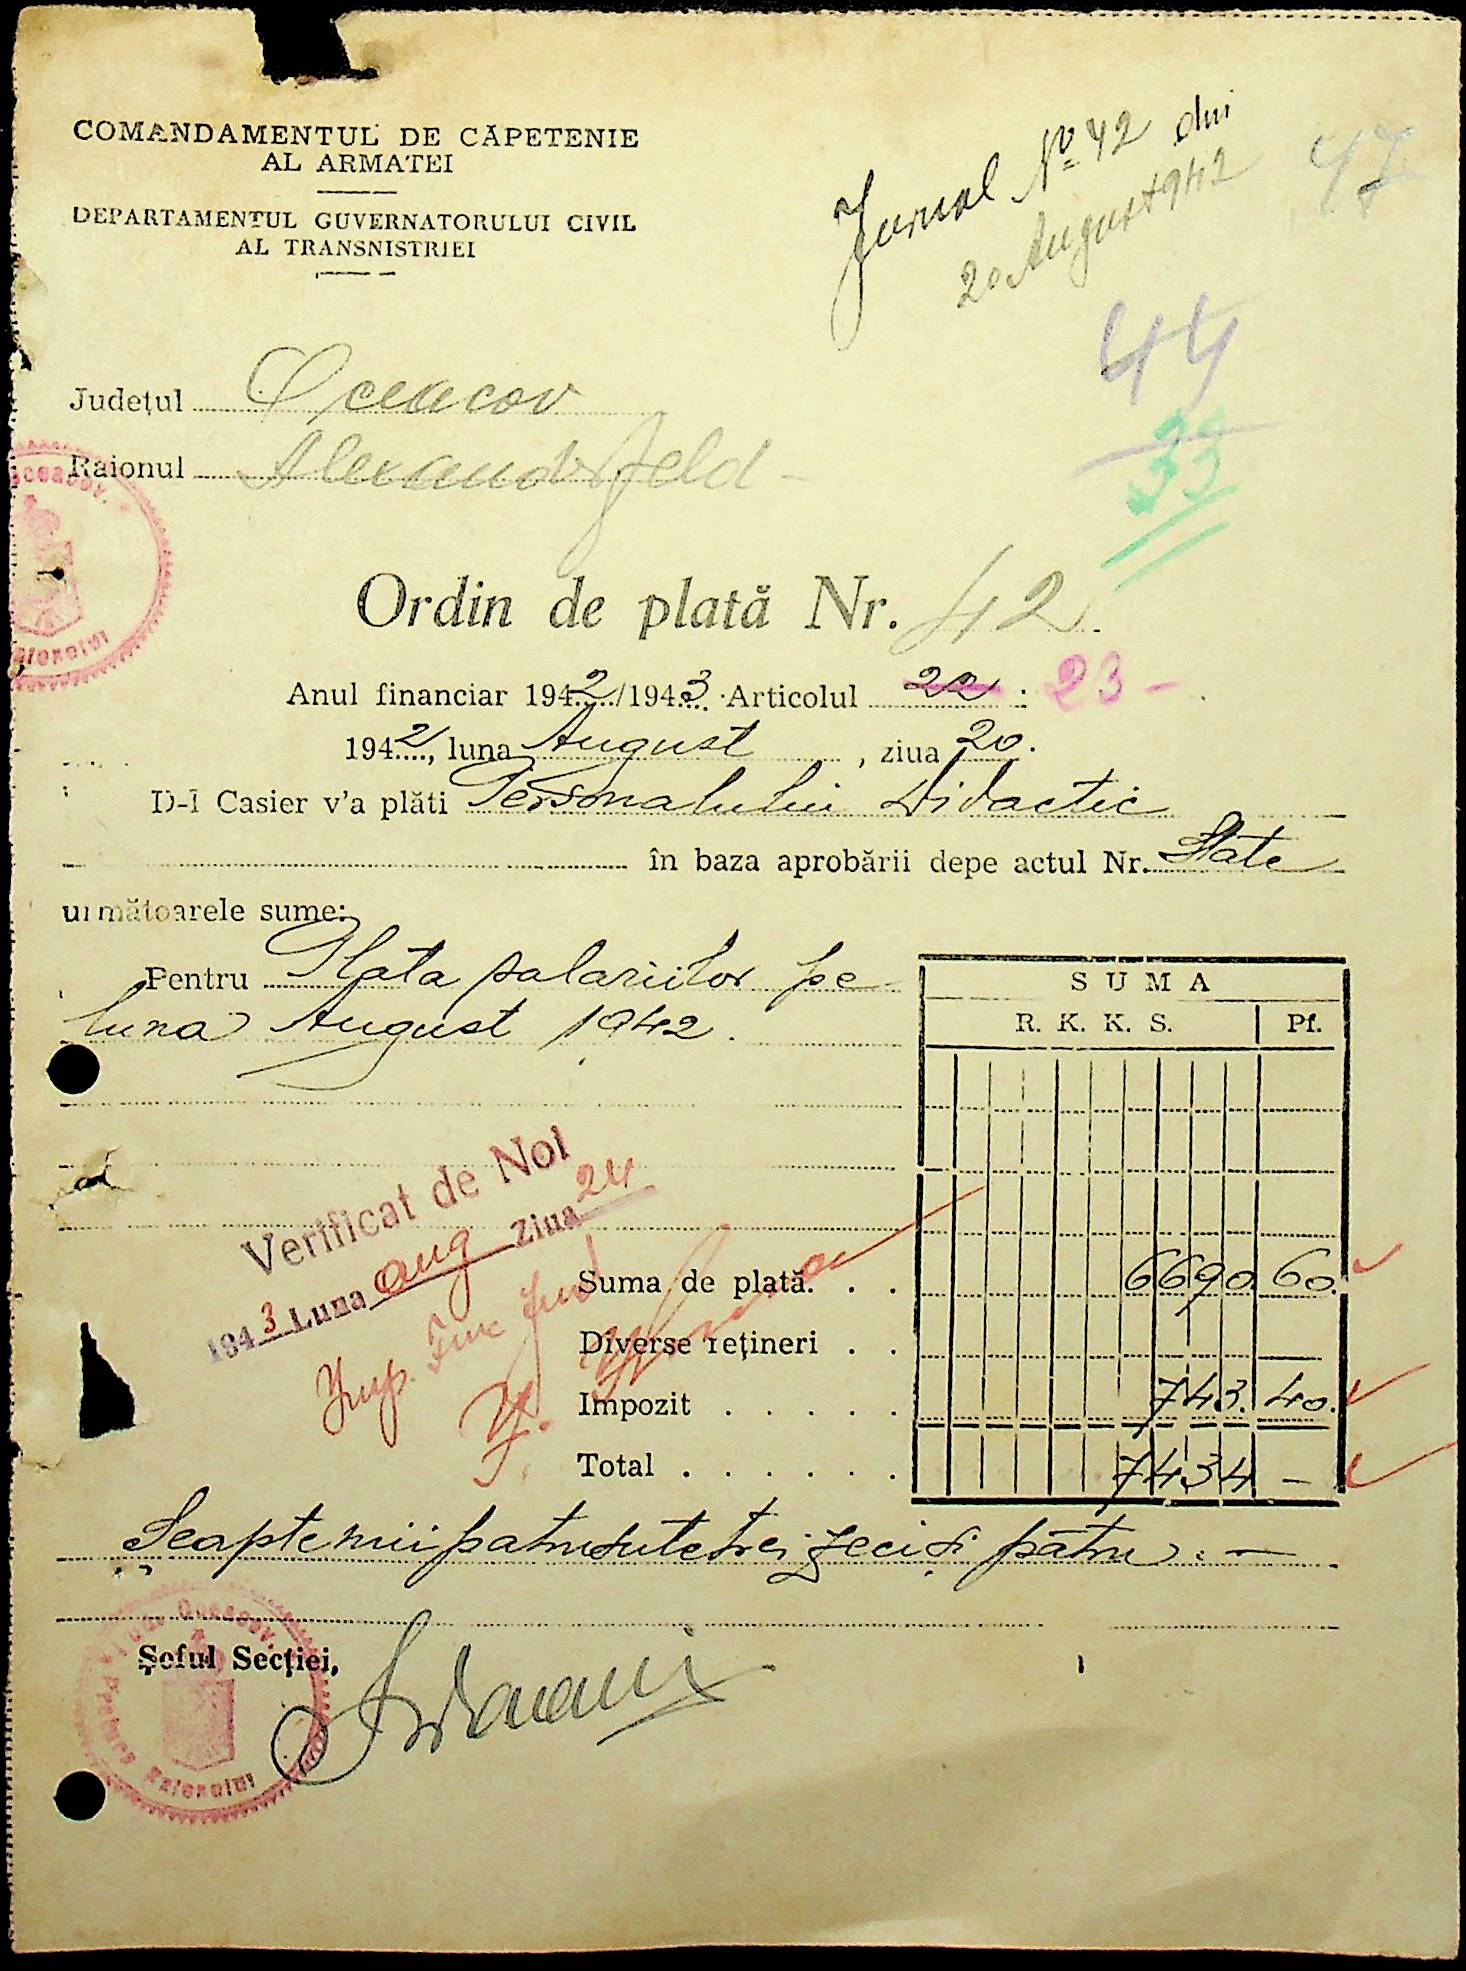 COMANDAMENTUL DE CĂPETENIE
AL ARMATEI
DEPARTAMENTUL GUVERNATORULUI CIVIL
AL TRANSNISTRIEI
Jurnal No 42 din
20 August 942
47
44
33
Județul Oceacov
Raionul Alexanderfeld
Ordin de plată Nr. 42.
Anul financiar 1942/1943 Articolul 22 : 23 -
1942, luna August, ziua 20.
D-l Casier v'a plăti Personalului Didactic
în baza aprobării depe actul Nr. State
următoarele sume:
Pentru Plata salariilor pe
luna August 1942.
SUMA
R. K. K. S. Pf.
Verificat de Noi
1943 Luna aug Ziua 24
Suma de plată . . . 6690 60.
Diverse rețineri . .
Impozit . . . . . . 743. 40.
Total . . . . . . 7434 -
Șeapte mii patru sute trei zeci și patru. -
Șeful Secției,
Oceacov
Raionului
Jud. Oceacov
Pretura Raionului